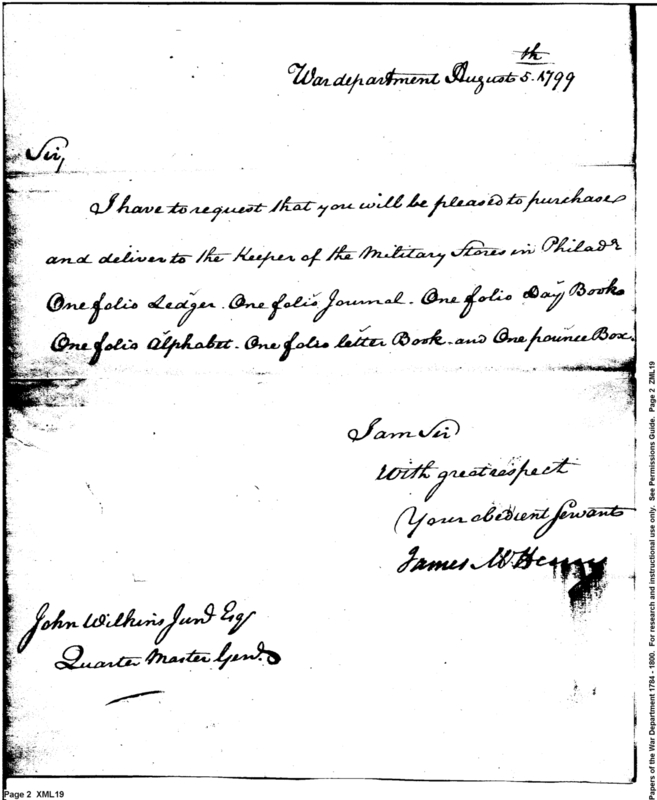 War department August 5.th 1799
Sir,
I have to request that you will be pleased to purchase
and deliver to the Keeper of the Military Stores in Philad.a
One folio Ledger. One folio Journal. One folio Day Book
One folio Alphabet. One folio letter Book. and One pounce Box.
I am Sir
With great respect
Your obedient Servant
James McHenry
John Wilkins Junr Esqr
Quarter Master Genl.
Page 2 XML19
Papers of the War Department 1784 - 1800. For research and instructional use only. See Permissions Guide. Page 2 ZML19